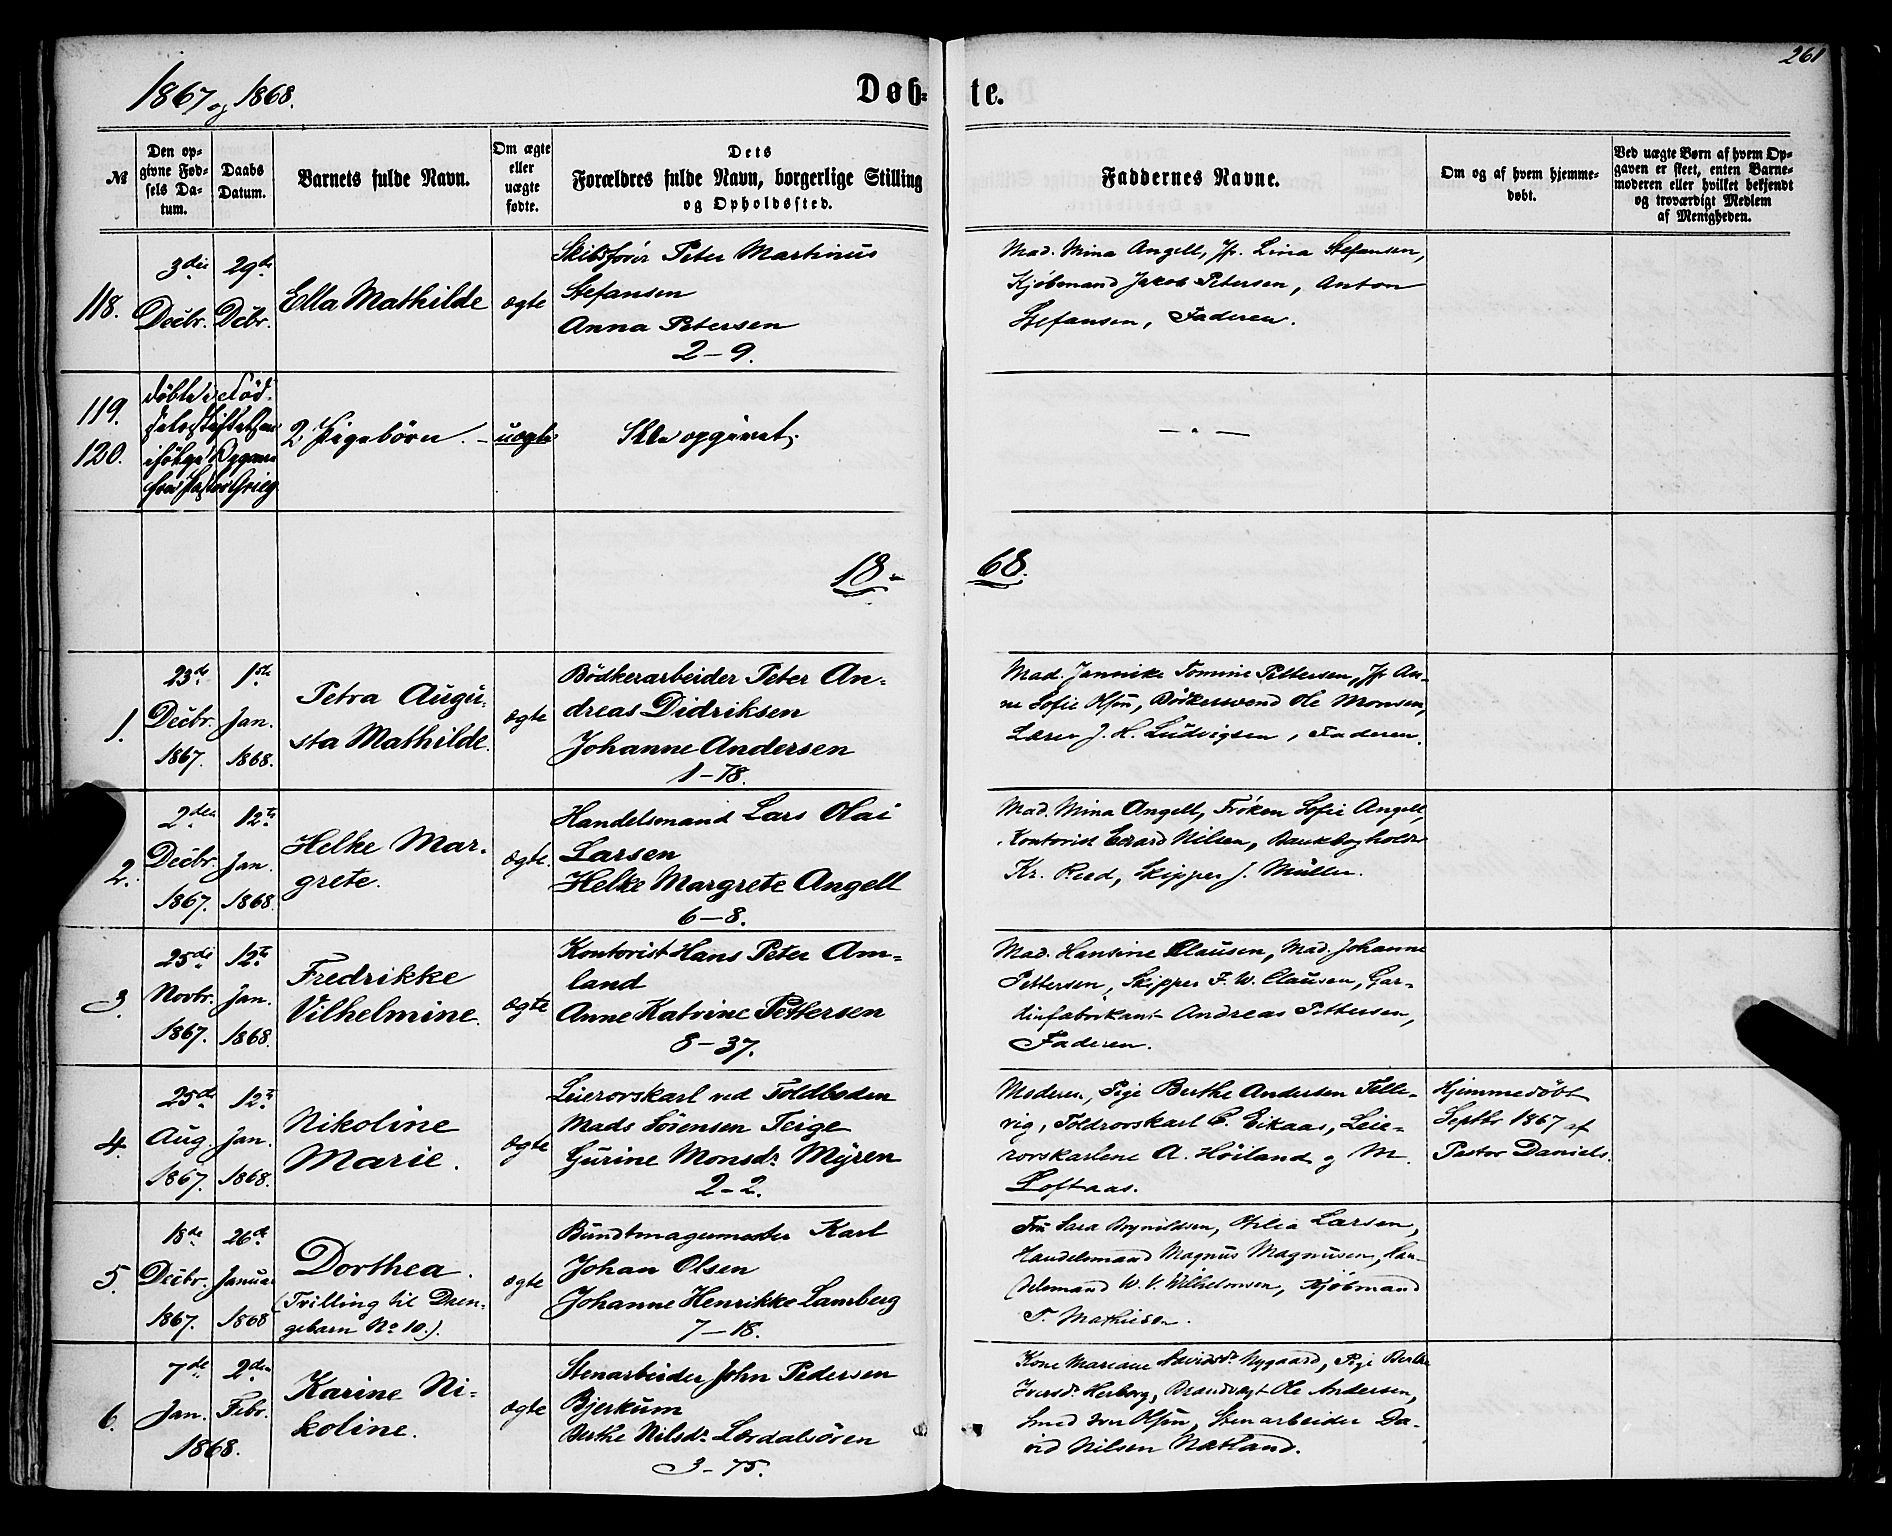 261
1867 og 1868.
Døb-
te.
№
Den op-
givne Fød-
sels Da-
tum.
Daabs
Datum.
Barnets fulde Navn.
Om ægte
eller
uægte
fødte.
Dets
Forældres fulde Navn, borgerlige Stilling
og Opholdssted.
Faddernes Navne.
Om og af hvem hjemme-
døbt.
Ved uægte Børn af hvem Op-
gaven er skeet, enten Barne-
moderen eller hvilket bekjendt
og troværdigt Medlem
af Menigheden.
118.
3die
Decbr.
29de
Dcbr.
Ella Mathilde
ægte
Skibsförer Peter Martinus
Stefansen
Anna Petersen
2-9.
Mad. Mina Angell, Jfr. Lina Stefansen,
Kjöbmand Jakob Petersen, Anton
Stefansen, Faderen.
119.
120.
döbte i Föd-
selsstiftelsen
ifölge
Pastor Grieg
2 Pigebörn.
uægte
Ikke opgivet.
— " —
18-
68.
1.
23de
Decbr.
1867.
1ste
Jan.
1868.
Petra Augu-
sta Mathilde.
ægte
Bödkerarbeider Peter An-
dreas Didriksen
Johanne Andersen
1-78.
Mad. Jannike Tomine Pettersen, Jfr. An-
ne Sofie Olsen, Bödkersvend Ole Monsen,
Lærer J. H. Ludvigsen, Faderen.
2.
2den
Decbr.
1867.
12te
Jan.
1868.
Helke Mar-
grete.
ægte.
Handelsmand Lars Olai
Larsen
Helke Margrete Angell
6-8.
Mad. Mina Angell, Fröken Sofie Angell,
Kontorist Edvard Nilsen, Bankbogholder
Kr. Reed, Skipper J. Müller.
3.
25de
Novbr.
1867.
12te
Jan.
1868.
Fredrikke
Vilhelmine.
ægte
Kontorist Hans Peter Am-
land
Anne Katrine Pettersen
8-37.
Mad. Hansine Clausen, Mad. Johanne
Pettersen, Skipper F. W. Clausen, Gar-
dinfabrikant Andreas Pettersen,
Faderen.
4.
25de
Aug.
1867.
12te
Jan.
1868.
Nikoline
Marie.
ægte
Leierorskarl ved Toldboden
Mads Sörensen Teige
Gurine Monsdr. Myren
2-2.
Moderen, Pige Berthe Andersen Telle-
vig, Toldrorskarl C. Eikaas, Leie-
rorskarlene A. Höiland og M.
Loftaas.
Hjemmedöbt
Septbr 1867 af
Pastor Daniels.
5.
18de
Decbr.
1867.
26de
Januar
1868
Dorthea.
(Tvilling til Dren-
gebarn No 10.).
ægte
Bundtmagermester Karl
Johan Olsen
Johanne Henrikke Lamberg
7-18.
Fru Sara Brynildsen, Otilia Larsen,
Handelsmand Magnus Magnusen, Han-
delsmand W. V. Vilhelmsen, Kjöbmand
T. Mathisen.
6.
7de
Jan.
2den
Febr.
1868.
Karine Ni-
koline.
ægte
Stenarbeider John Pedersen
Bjerkum
Berthe Nilsdr. Lærdalsören
3-75.
Kone Mariane Davidsdr. Nygaard, Pige Berthe
Iversdr. Herborg, Brandvagt Ole Andersen,
Smed Iver Olsen, Stenarbeider Da-
vid Nilsen Natland.